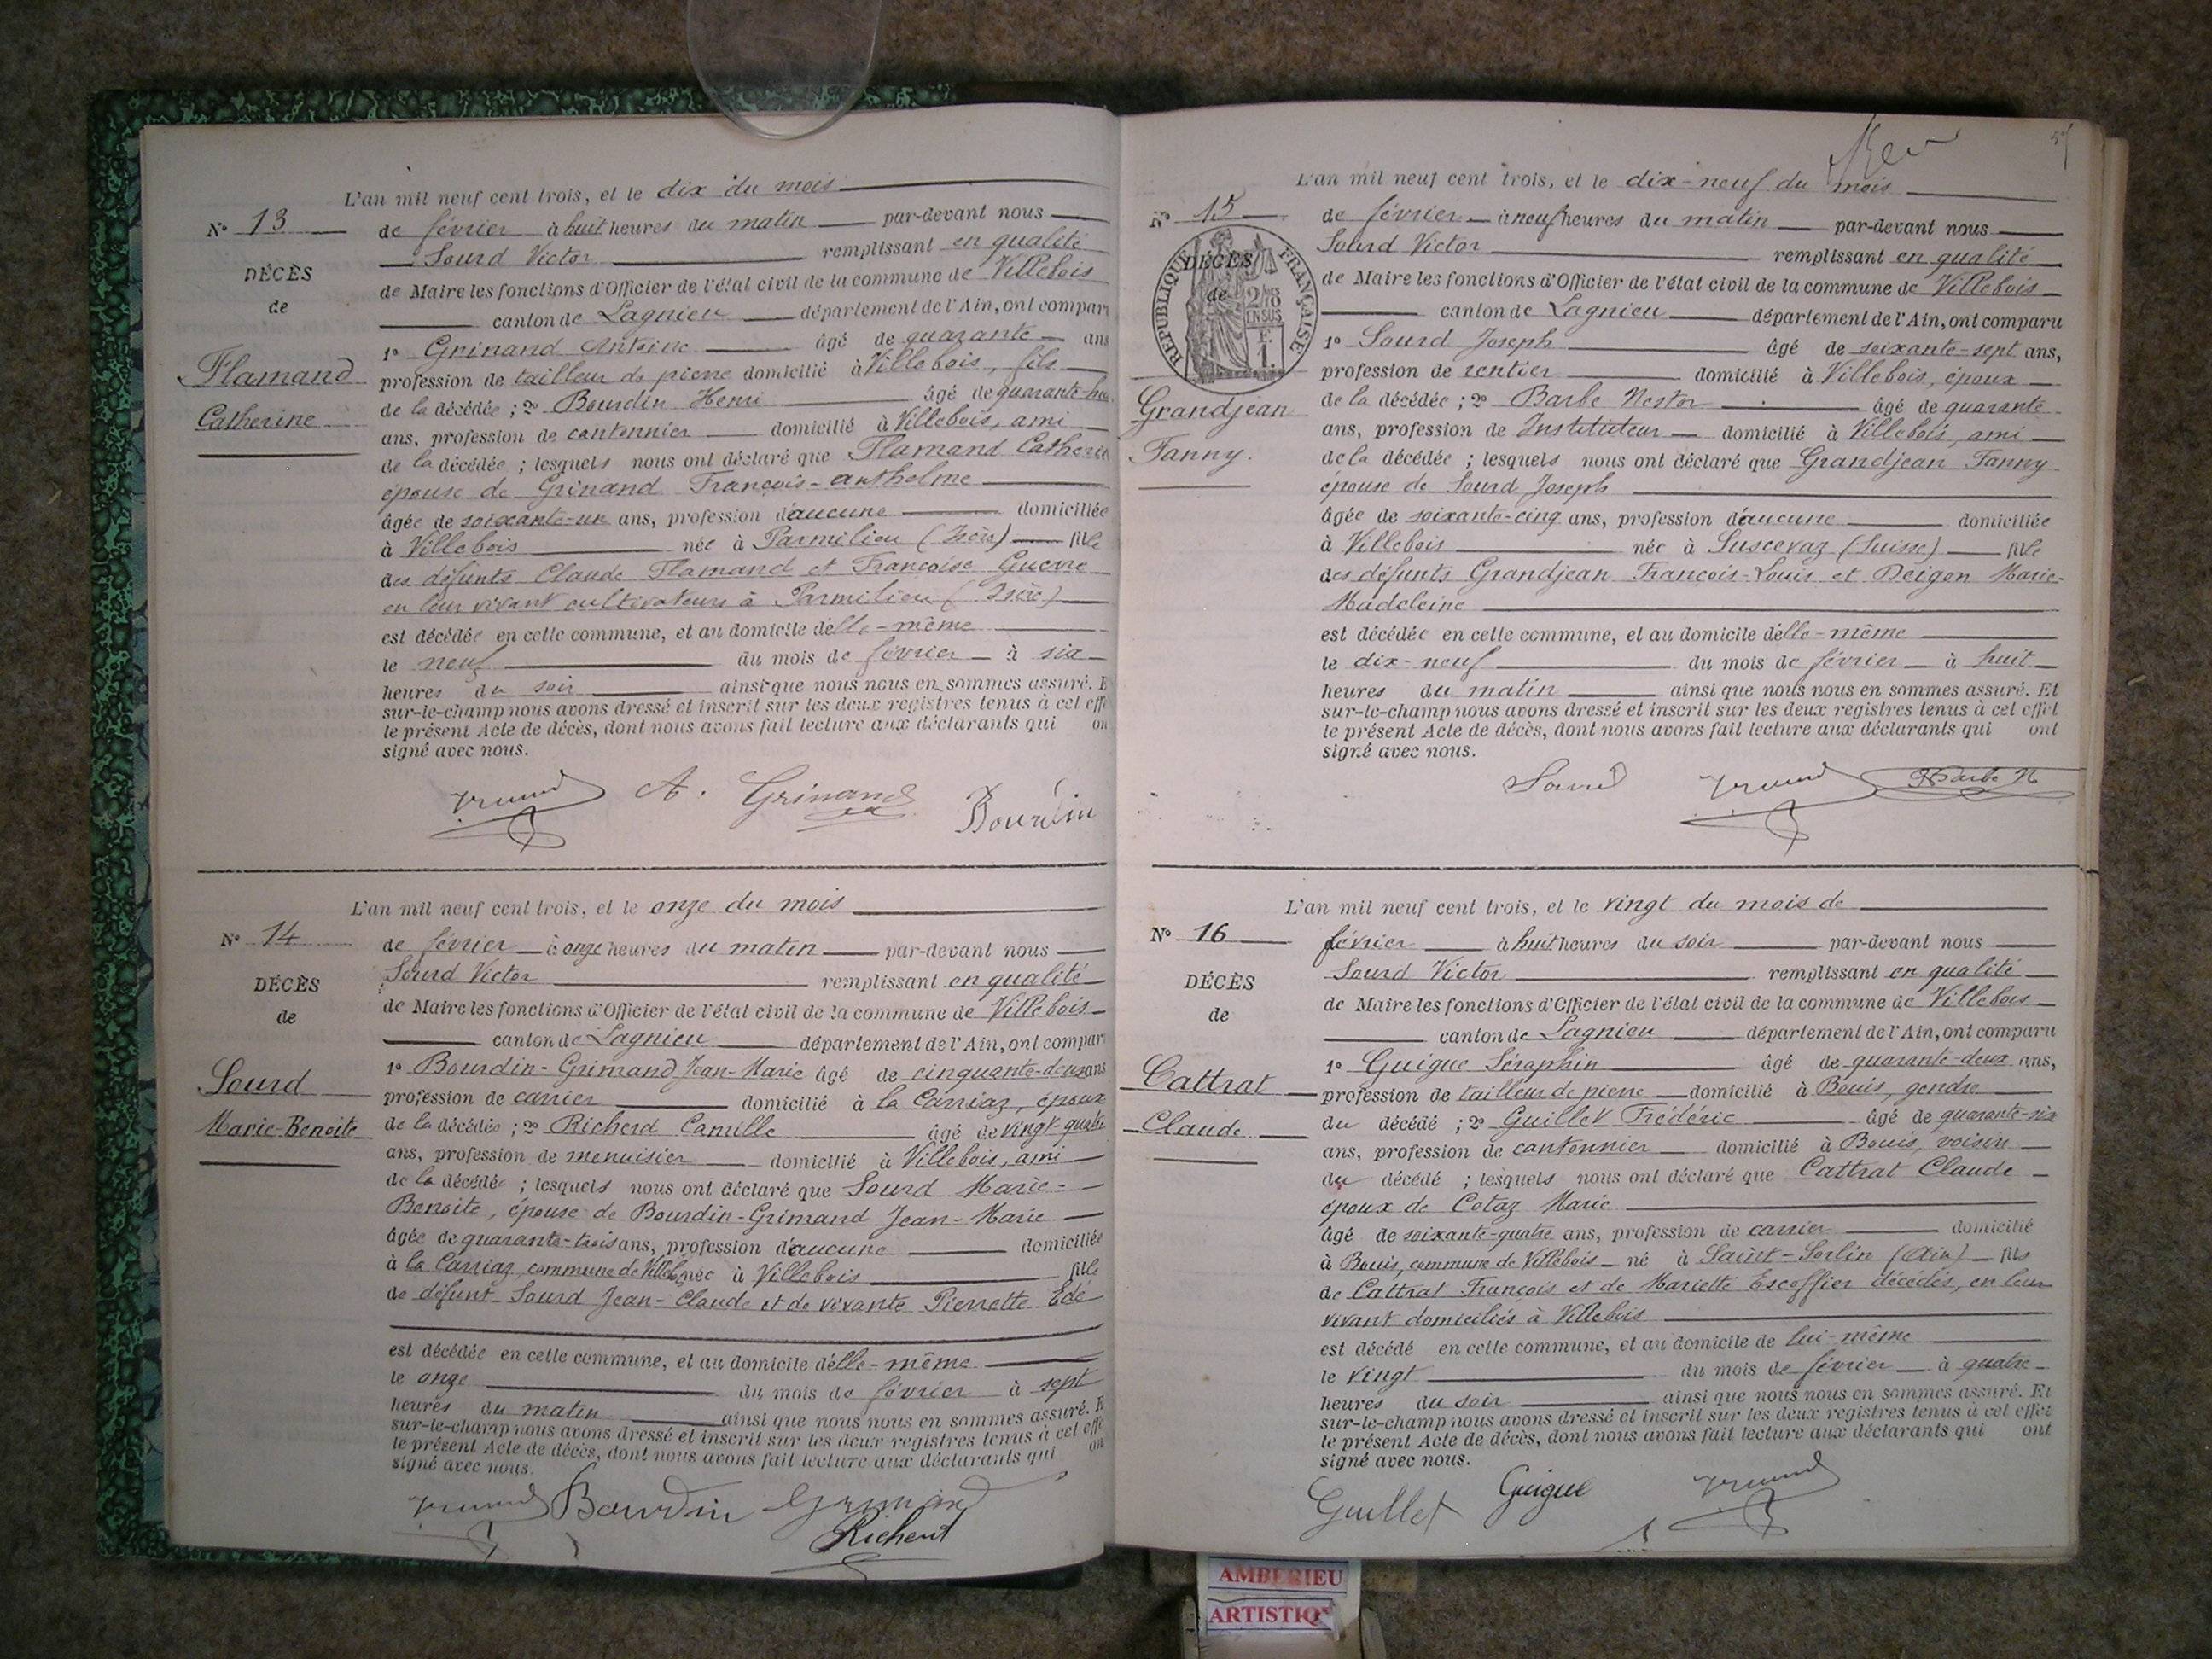 L'an mil neuf cent trois, et le dix du mois
N° 13
de février à huit heures du matin par-devant nous
Sourd Victor remplissant en qualité
DÉCÈS
de Maire les fonctions d'Officier de l'état civil de la commune de Villebois
de
canton de Lagnieu département de l'Ain, ont compar
1° Grinand Antoine âgé de quarante ans
Flamand
profession de tailleur de pierre domicilié à Villebois, fils
de la décédée ; 2° Bourdin Henri âgé de quarante-
Catherine
ans, profession de cantonnier domicilié à Villebois, ami
de la décédée ; lesquels nous ont déclaré que Flamand Catherin
épouse de Grinand François-anthelme
âgée de soixante-un ans, profession d'aucune domiciliée
à Villebois née à Parmilieu (Isère) fille
des défunts Claude Flamand et Françoise Guerre
en leur vivant cultivateurs à Parmilieu (Isère)
est décédée en cette commune, et au domicile d'elle-même
le neuf du mois de février à six
heures du soir ainsi que nous nous en sommes assuré. E
sur-le-champ nous avons dressé et inscrit sur les deux registres tenus à cet effe
le présent Acte de décès, dont nous avons fait lecture aux déclarants qui on
signé avec nous.
A. Grinand Bourdin
L'an mil neuf cent trois, et le onze du mois
N° 14
de février à onze heures du matin par-devant nous
DÉCÈS
Sourd Victor remplissant en qualité
de
de Maire les fonctions d'Officier de l'état civil de la commune de Villebois
canton de Lagnieu département de l'Ain, ont compar
Sourd
1° Bourdin-Grimand Jean-Marie âgé de cinquante-deux ans
profession de carrier domicilié à la Carriaz, époux
Marie-Benoite
de la décédée ; 2° Richerd Camille âgé de vingt-quatre
ans, profession de menuisier domicilié à Villebois, ami
de la décédée ; lesquels nous ont déclaré que Sourd Marie-
Benoite, épouse de Bourdin-Grimand Jean-Marie
âgée de quarante-trois ans, profession d'aucune domiciliée
à la Carriaz, commune de Villebois née à Villebois fille
de défunt Sourd Jean-Claude et de vivante Pierrette Edé
est décédée en cette commune, et au domicile d'elle-même
le onze du mois de février à sept
heures du matin ainsi que nous nous en sommes assuré. E
sur-le-champ nous avons dressé et inscrit sur les deux registres tenus à cet effe
le présent Acte de décès, dont nous avons fait lecture aux déclarants qui on
signé avec nous.
Bourdin Grimand
Richerd
57
L'an mil neuf cent trois, et le dix-neuf du mois
N° 15
de février à neuf heures du matin par-devant nous
Sourd Victor remplissant en qualité
DÉCÈS
de
REPUBLIQUE FRANÇAISE
2/10 EN SUS
1 F.
de Maire les fonctions d'Officier de l'état civil de la commune de Villebois
canton de Lagnieu département de l'Ain, ont comparu
1° Sourd Joseph âgé de soixante-sept ans,
profession de rentier domicilié à Villebois, époux
Grandjean
de la décédée ; 2° Barbe Nestor âgé de quarante
ans, profession de Instituteur domicilié à Villebois, ami
Fanny.
de la décédée ; lesquels nous ont déclaré que Grandjean Fanny
épouse de Sourd Joseph
âgée de soixante-cinq ans, profession d'aucune domiciliée
à Villebois née à Suscevaz (Suisse) fille
des défunts Grandjean François-Louis et Deigon Marie-
Madeleine
est décédée en cette commune, et au domicile d'elle-même
le dix-neuf du mois de février à huit
heures du matin ainsi que nous nous en sommes assuré. Et
sur-le-champ nous avons dressé et inscrit sur les deux registres tenus à cet effet
le présent Acte de décès, dont nous avons fait lecture aux déclarants qui ont
signé avec nous.
Sourd Barbe N
L'an mil neuf cent trois, et le vingt du mois de
N° 16
février à huit heures du soir par-devant nous
Sourd Victor remplissant en qualité
DÉCÈS
de Maire les fonctions d'Officier de l'état civil de la commune de Villebois
de
canton de Lagnieu département de l'Ain, ont comparu
1° Guigue Séraphin âgé de quarante-deux ans,
Cattrat
profession de tailleur de pierre domicilié à Bouis, gendre
Claude
du décédé ; 2° Guillet Frédéric âgé de quarante-six
ans, profession de cantonnier domicilié à Bouis, voisin
du décédé ; lesquels nous ont déclaré que Cattrat Claude
époux de Cotaz Marie
âgé de soixante-quatre ans, profession de carrier domicilié
à Bouis, commune de Villebois né à Saint-Sorlin (Ain) fils
de Cattrat François et de Mariette Escoffier décédés, en leur
vivant domiciliés à Villebois
est décédé en cette commune, et au domicile de lui-même
le vingt du mois de février à quatre
heures du soir ainsi que nous nous en sommes assuré. Et
sur-le-champ nous avons dressé et inscrit sur les deux registres tenus à cet effet
le présent Acte de décès, dont nous avons fait lecture aux déclarants qui ont
signé avec nous.
Guillet Guigue
AMBERIEU
ARTISTIQ